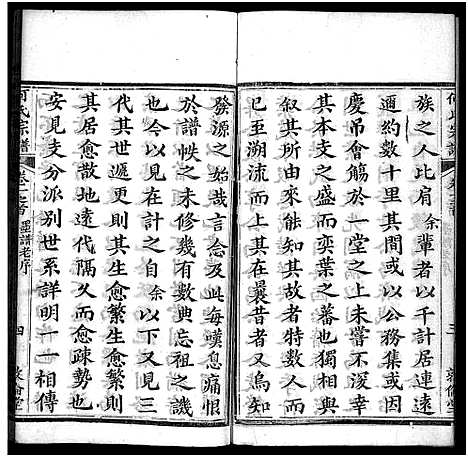 族之人比肩余輩者以千計居連遠
邇約數十里其間或以公務集或因
慶吊會觴於一堂之上未嘗不深幸
其本支之盛而奕葉之蕃也獨相與
言溯流而上其在曩昔者又烏知
發源之始哉言念及此每嘆息痛恨
於譜帙之未修幾我數典忘祖之譏
也今以又以修計之自余以下又見三
代其世遞更則其生愈繁生愈繁則
其居愈散迨代隔久而愈疎勢也
安見支分派別世系詳明一一相傳
何氏宗譜
老序
四
敦倫堂
何氏宗譜
三
敦倫堂